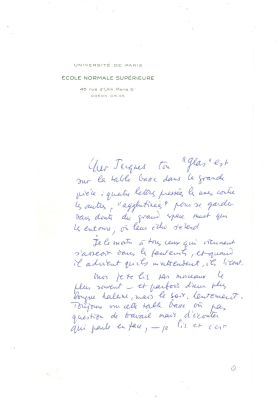 UNIVERSITÉ DE PARIS
ECOLE NORMALE SUPÉRIEURE
45, rue d'Ulm, Paris 5e
Cher Jacques ton "Glas" est
sur la table basse dans la grande
pièce : quatre lettres, pressées les unes contre
les autres, pour se garder
du grand qui
les entoure, où leur s'étend
Je le montre à tous ceux qui viennent
s'asseoir dans les fauteuils, et quand
il advient qu'ils m'entendent, ils lisent.
Moi je te lis par morceaux le
plus souvent — et parfois d'une plus
longue haleine, mais le soir, lentement.
Toujours sur cette table basse où pas
question de travail mais d'écouter
qui parle en face, — je lis et c'est